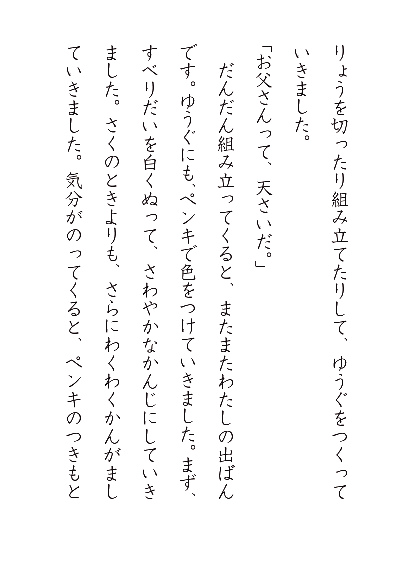 りょうを切ったり組み立てたりして、ゆうぐをつくって
いきました。
「お父さんって、天さいだ。」
　だんだん組み立ってくると、またまたわたしの出ばん
です。ゆうぐにも、ペンキで色をつけていきました。まず、
すべりだいを白くぬって、さわやかなかんじにしていき
ました。さくのときよりも、さらにわくわくかんがまし
ていきました。気分がのってくると、ペンキのつきもと